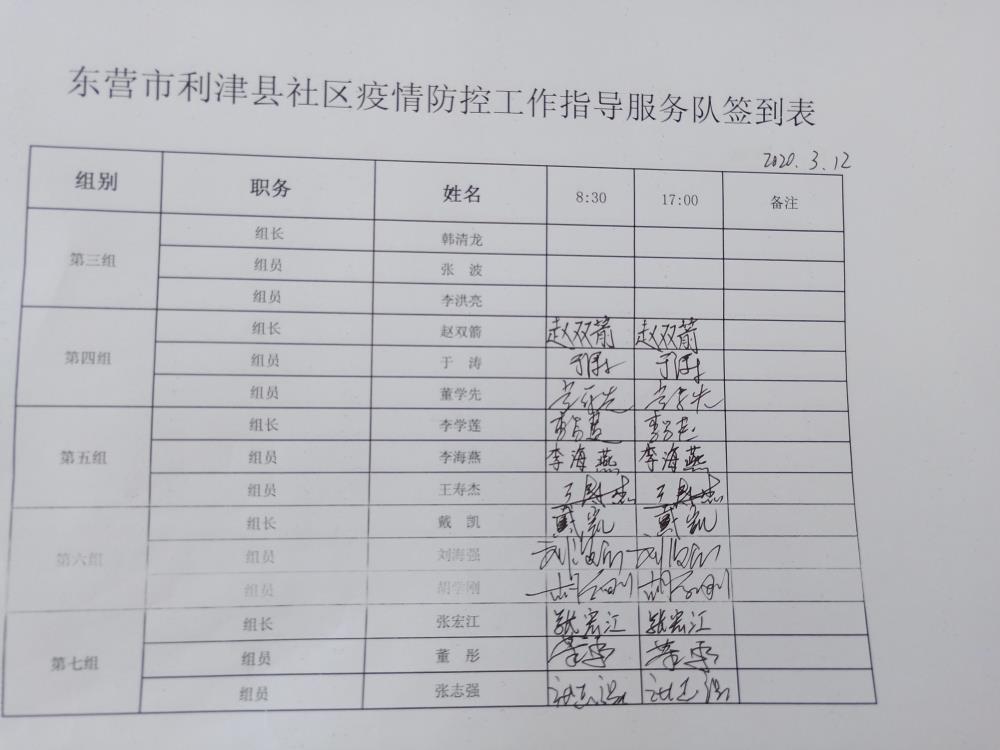 东营市利津县社区疫情防控工作指导服务队签到表
2020.3.12
组别 职务 姓名 8:30 17:00 备注
第三组 组长 韩清龙
组员 张 波
组员 李洪亮
第四组 组长 赵双箭 赵双箭 赵双箭
组员 于 涛 于涛 于涛
组员 董学先 董学先 董学先
第五组 组长 李学莲 李学莲 李学莲
组员 李海燕 李海燕 李海燕
组员 王寿杰 王寿杰 王寿杰
第六组 组长 戴 凯 戴凯 戴凯
组员 刘海强 刘海强 刘海强
组员 胡学刚 胡学刚 胡学刚
第七组 组长 张宏江 张宏江 张宏江
组员 董 彤 董彤 董彤
组员 张志强 张志强 张志强